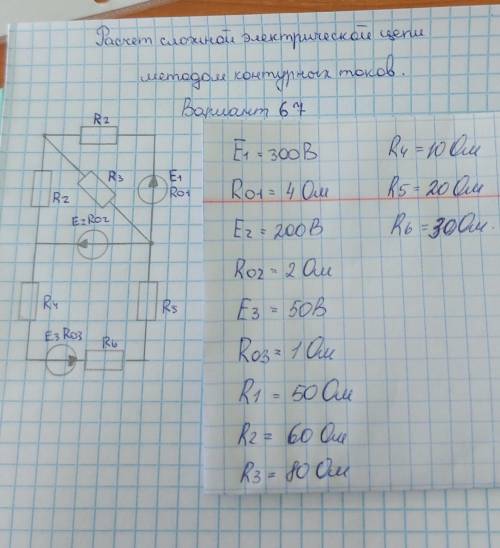 Расчет сложной электрической цепи
методом контурных токов.
Вариант 67
R2
R3
E1
R01
R2
E2R02
R4
R5
E3R03
R6
E1 = 300В
R01 = 4 Ом
E2 = 200В
R02 = 2 Ом
E3 = 50В
R03 = 1 Ом
R1 = 50 Ом
R2 = 60 Ом
R3 = 80 Ом
R4 = 10 Ом
R5 = 20 Ом
R6 = 30 Ом.